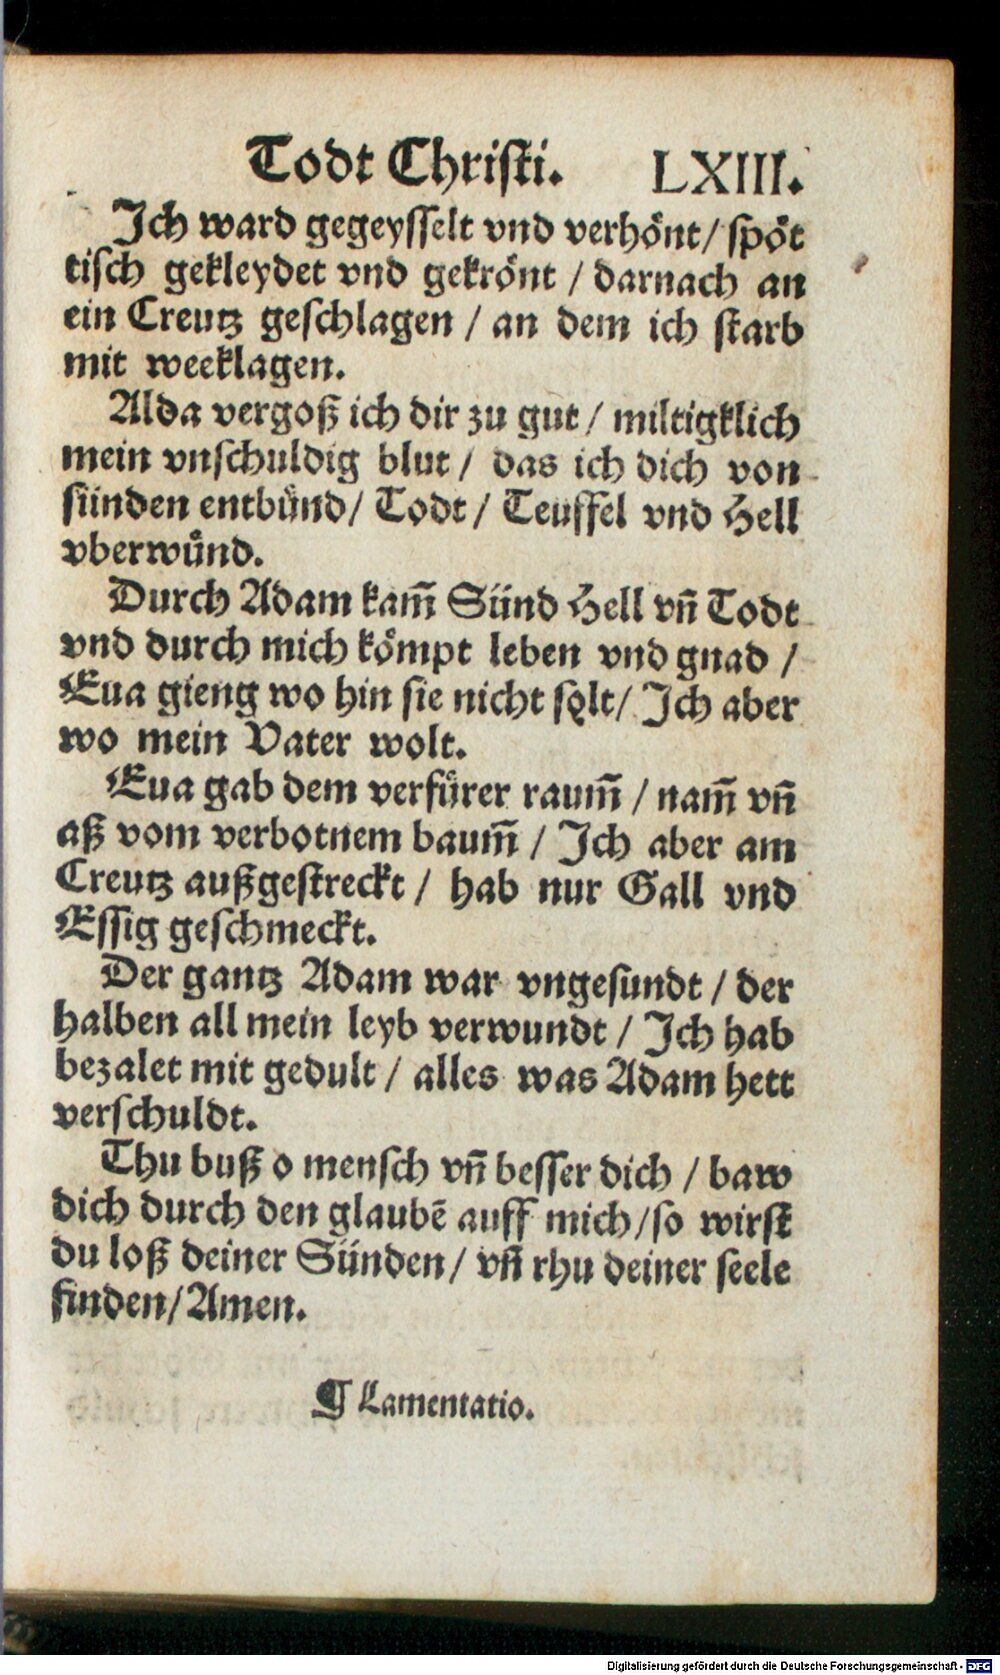 Todt Christi. LXIII.
Ich ward gegeysselt vnd verhönt / spöt
tisch gekleydet vnd gekrönt / darnach an
ein Creutz geschlagen / an dem ich starb
mit weeklagen.
Alda vergoß ich dir zu gut / miltigklich
mein vnschuldig blut / das ich dich von
sünden entbünd / Todt / Teuffel vnd Hell
vberwünd.
Durch Adam kam̃ Sünd Hell vñ Todt
vnd durch mich kömpt leben vnd gnad /
Eua gieng wo hin sie nicht solt / Ich aber
wo mein Vater wolt.
Eua gab dem verfürer raum̃ / nam̃ vñ
aß vom verbotnem baum̃ / Ich aber am
Creutz außgestreckt / hab nur Gall vnd
Essig geschmeckt.
Der gantz Adam war vngesundt / der
halben all mein leyb verwundt / Ich hab
bezalet mit gedult / alles was Adam hett
verschuldt.
Thu buß o mensch vñ besser dich / baw
dich durch den glaubẽ auff mich / so wirst
du loß deiner Sünden / vñ rhu deiner seele
finden / Amen.
¶ Lamentatio.
Digitalisierung gefördert durch die Deutsche Forschungsgemeinschaft - DFG